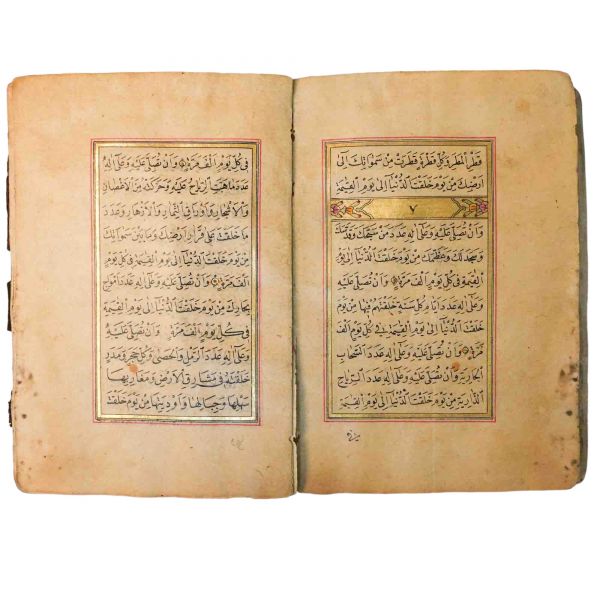 قطر المطر وكل قطرة قطرت من سمواتك الى
ارضك من يوم خلقت الدنيا الى يوم القيمة
٧
وان تصلي عليه وعلى اله عدد من سبحك وقدسك
وسجد لك وعظمك من يوم خلقت الدنيا الى يوم
القيمة في كل يوم الف مرة وان تصلي عليه
وعلى اله عدد ايام كل سنة خلقتهم فيها من يوم
خلقت الدنيا الى يوم القيمة في كل يوم الف
مرة وان تصلي عليه وعلى اله عدد السحاب
الجارية وان تصلي عليه وعلى اله عدد الرياح
الذارية من يوم خلقت الدنيا الى يوم القيمة
في كل يوم الف مرة وان تصلي عليه وعلى اله
عدد ما هبت الرياح عليه وحركته من الاغصان
والاشجار واوراق الثمار والازهار وعدد
ما خلقت على قرار ارضك وما بين سمواتك
من يوم خلقت الدنيا الى يوم القيمة في كل يوم
الف مرة وان تصلي عليه وعلى اله عدد امواج
بحارك من يوم خلقت الدنيا الى يوم القيمة
في كل يوم الف مرة وان تصلي عليه
وعلى اله عدد الرمل والحصى وكل حجر ومدر
خلقته في مشارق الارض ومغاربها
سهلها وجبالها واوديتها من يوم خلقت